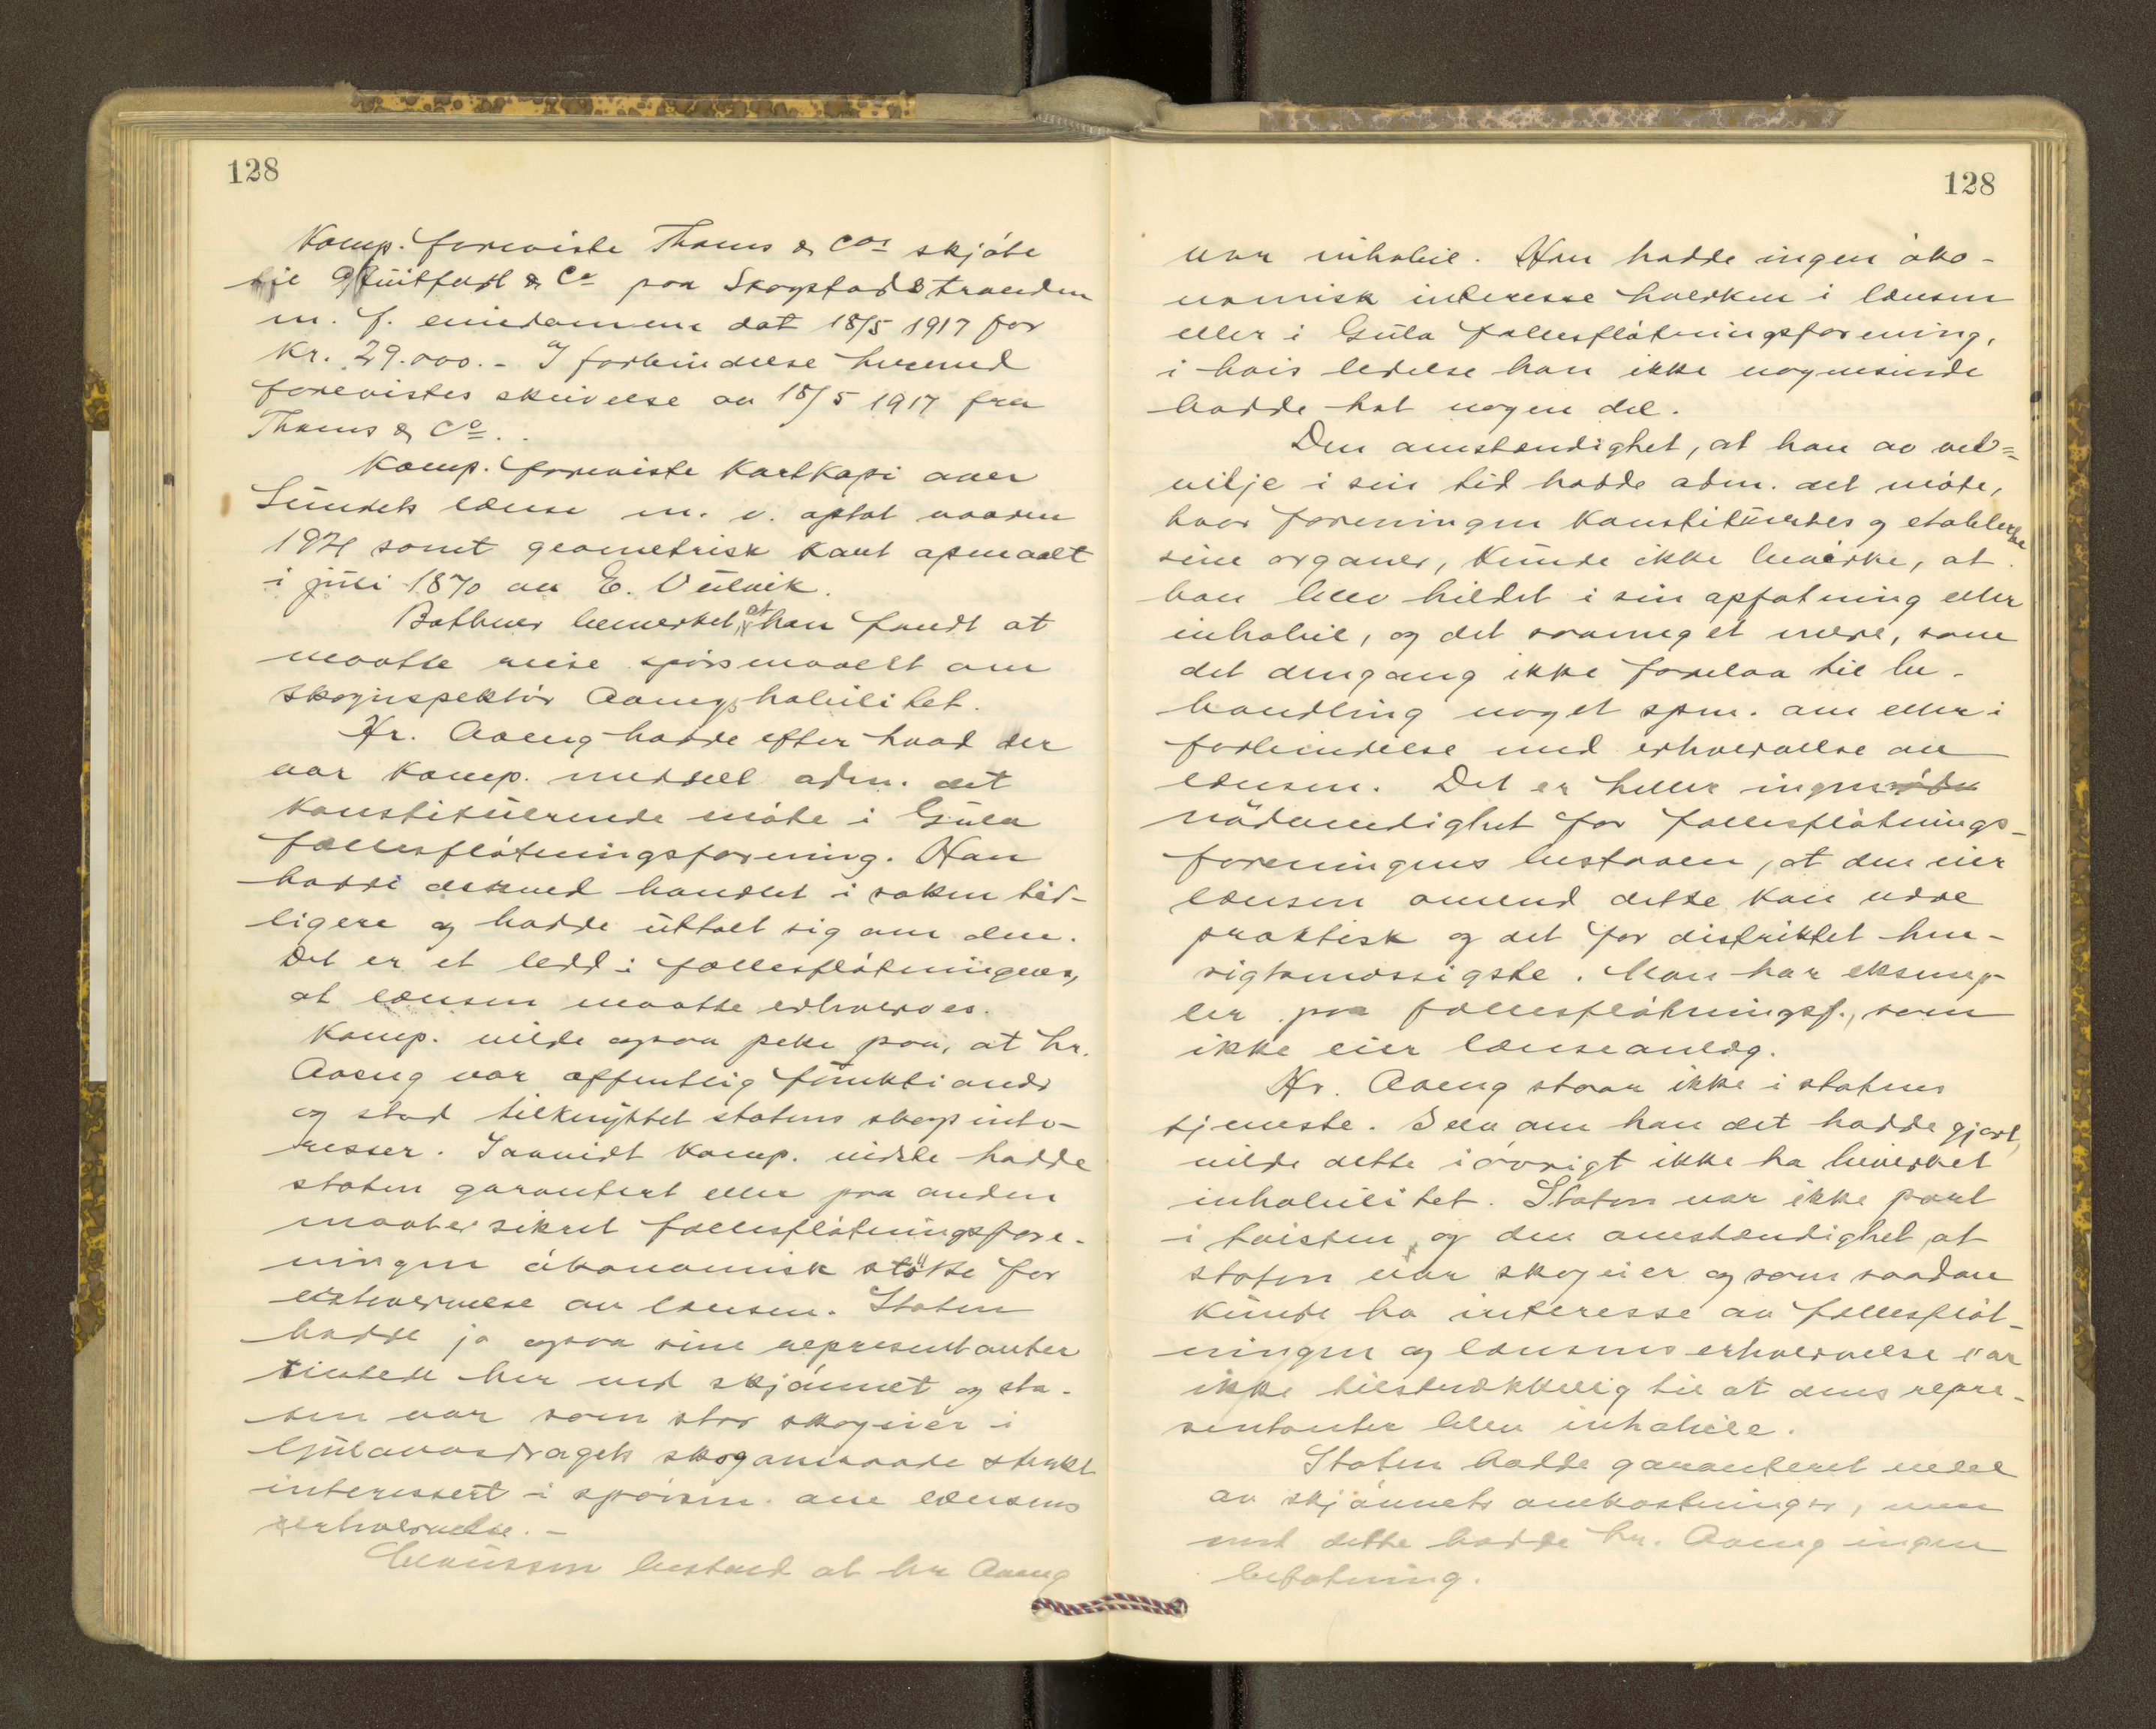 128
Komp. foreviste Thams & Cos skjöte
til Qvitfeldt & Co paa Skogstadstranden
m. f. eiendomme dat 18/5 1917 for
Kr. 29.000.- I forbindelse hermed
forevistes skrivelse av 18/5 1917 fra
Thams & Co.
Komp. foreviste kartkopi over
Sundets lænse m. v. optat vaaren
1921 samt geometrisk kart opmaalt
i juli 1870 av E.
Bothner bemerket at han fandt at
maatte reise spörsmaalet om
skoginspektör Aaengs habilitet.
Hr. Aaeng hadde efter hvad der
var komp. meddelt adm. det
konstituerende möte i Gula
fællesflötningsforening. Han
hadde dermed handlet i saken tid-
ligere og hadde uttalt sig om den.
Det er et ledd i fællesflötningen,
at lænsen maatte erhverves.
Komp. vilde ogsaa peke paa, at hr.
Aaeng var offentlig funktionær
og stod tilknyttet statens skoginte-
resser. Saavidt komp. vidste hadde
staten garantert eller paa anden
maate sikret fællesflötningsfore-
ningen ökonomisk stötte for
erhvervelse av lænsen. Staten
hadde jo ogsaa sine representanter
tilstede her ved skjönnet og sta-
ten var som stor skogeier i
Gulavasdragets skogomraade sterkt
interessert i spörsm. om lænsens
erhvervelse. -
Claussen bestred at hr Aaeng
128
var inhabil. Han hadde ingen öko-
nomisk interesse hverken i lænsen
eller i Gula fællesflötningsforening,
i hvis ledelse han ikke nogensinde
hadde hat nogen del.
Den omstændighet, at han av vel-
vilje i sin tid hadde adm. det möte,
hvor foreningen konstituertes og etablerte
sine organer, kunde ikke bevirke, at
han blev hildet i sin opfatning eller
inhabil, og det saameget mere, som
det dengang ikke forelaa til be-
handling noget spm. om eller i
forbindelse med erhvervelse av
lænsen. Det er heller ingen
nödvendighet for fællesflötnings-
foreningens bestaaen, at den eier
lænsen omend dette kan være
praktisk og det for distriktet hen-
sigtsmæssigste. Man har eksemp-
ler paa fællesflötningsf., som
ikke eier lænseanlæg.
Hr. Aaeng staar ikke i statens
tjeneste. Selv om han det hadde gjort,
vilde dette iövrigt ikke ha bevirket
inhabilitet. Staten var ikke part
i tvisten, og den omstændighet at
staten var skogeier og som saadan
kunde ha interesse av fællesflöt-
ningen og lænsens erhvervelse var
ikke tilstrækkelig til at dens repre-
sentanter blev inhabile.
Staten hadde garanteret endel
av skjönnets omkostninger, men
med dette hadde hr. Aaeng ingen
befatning.